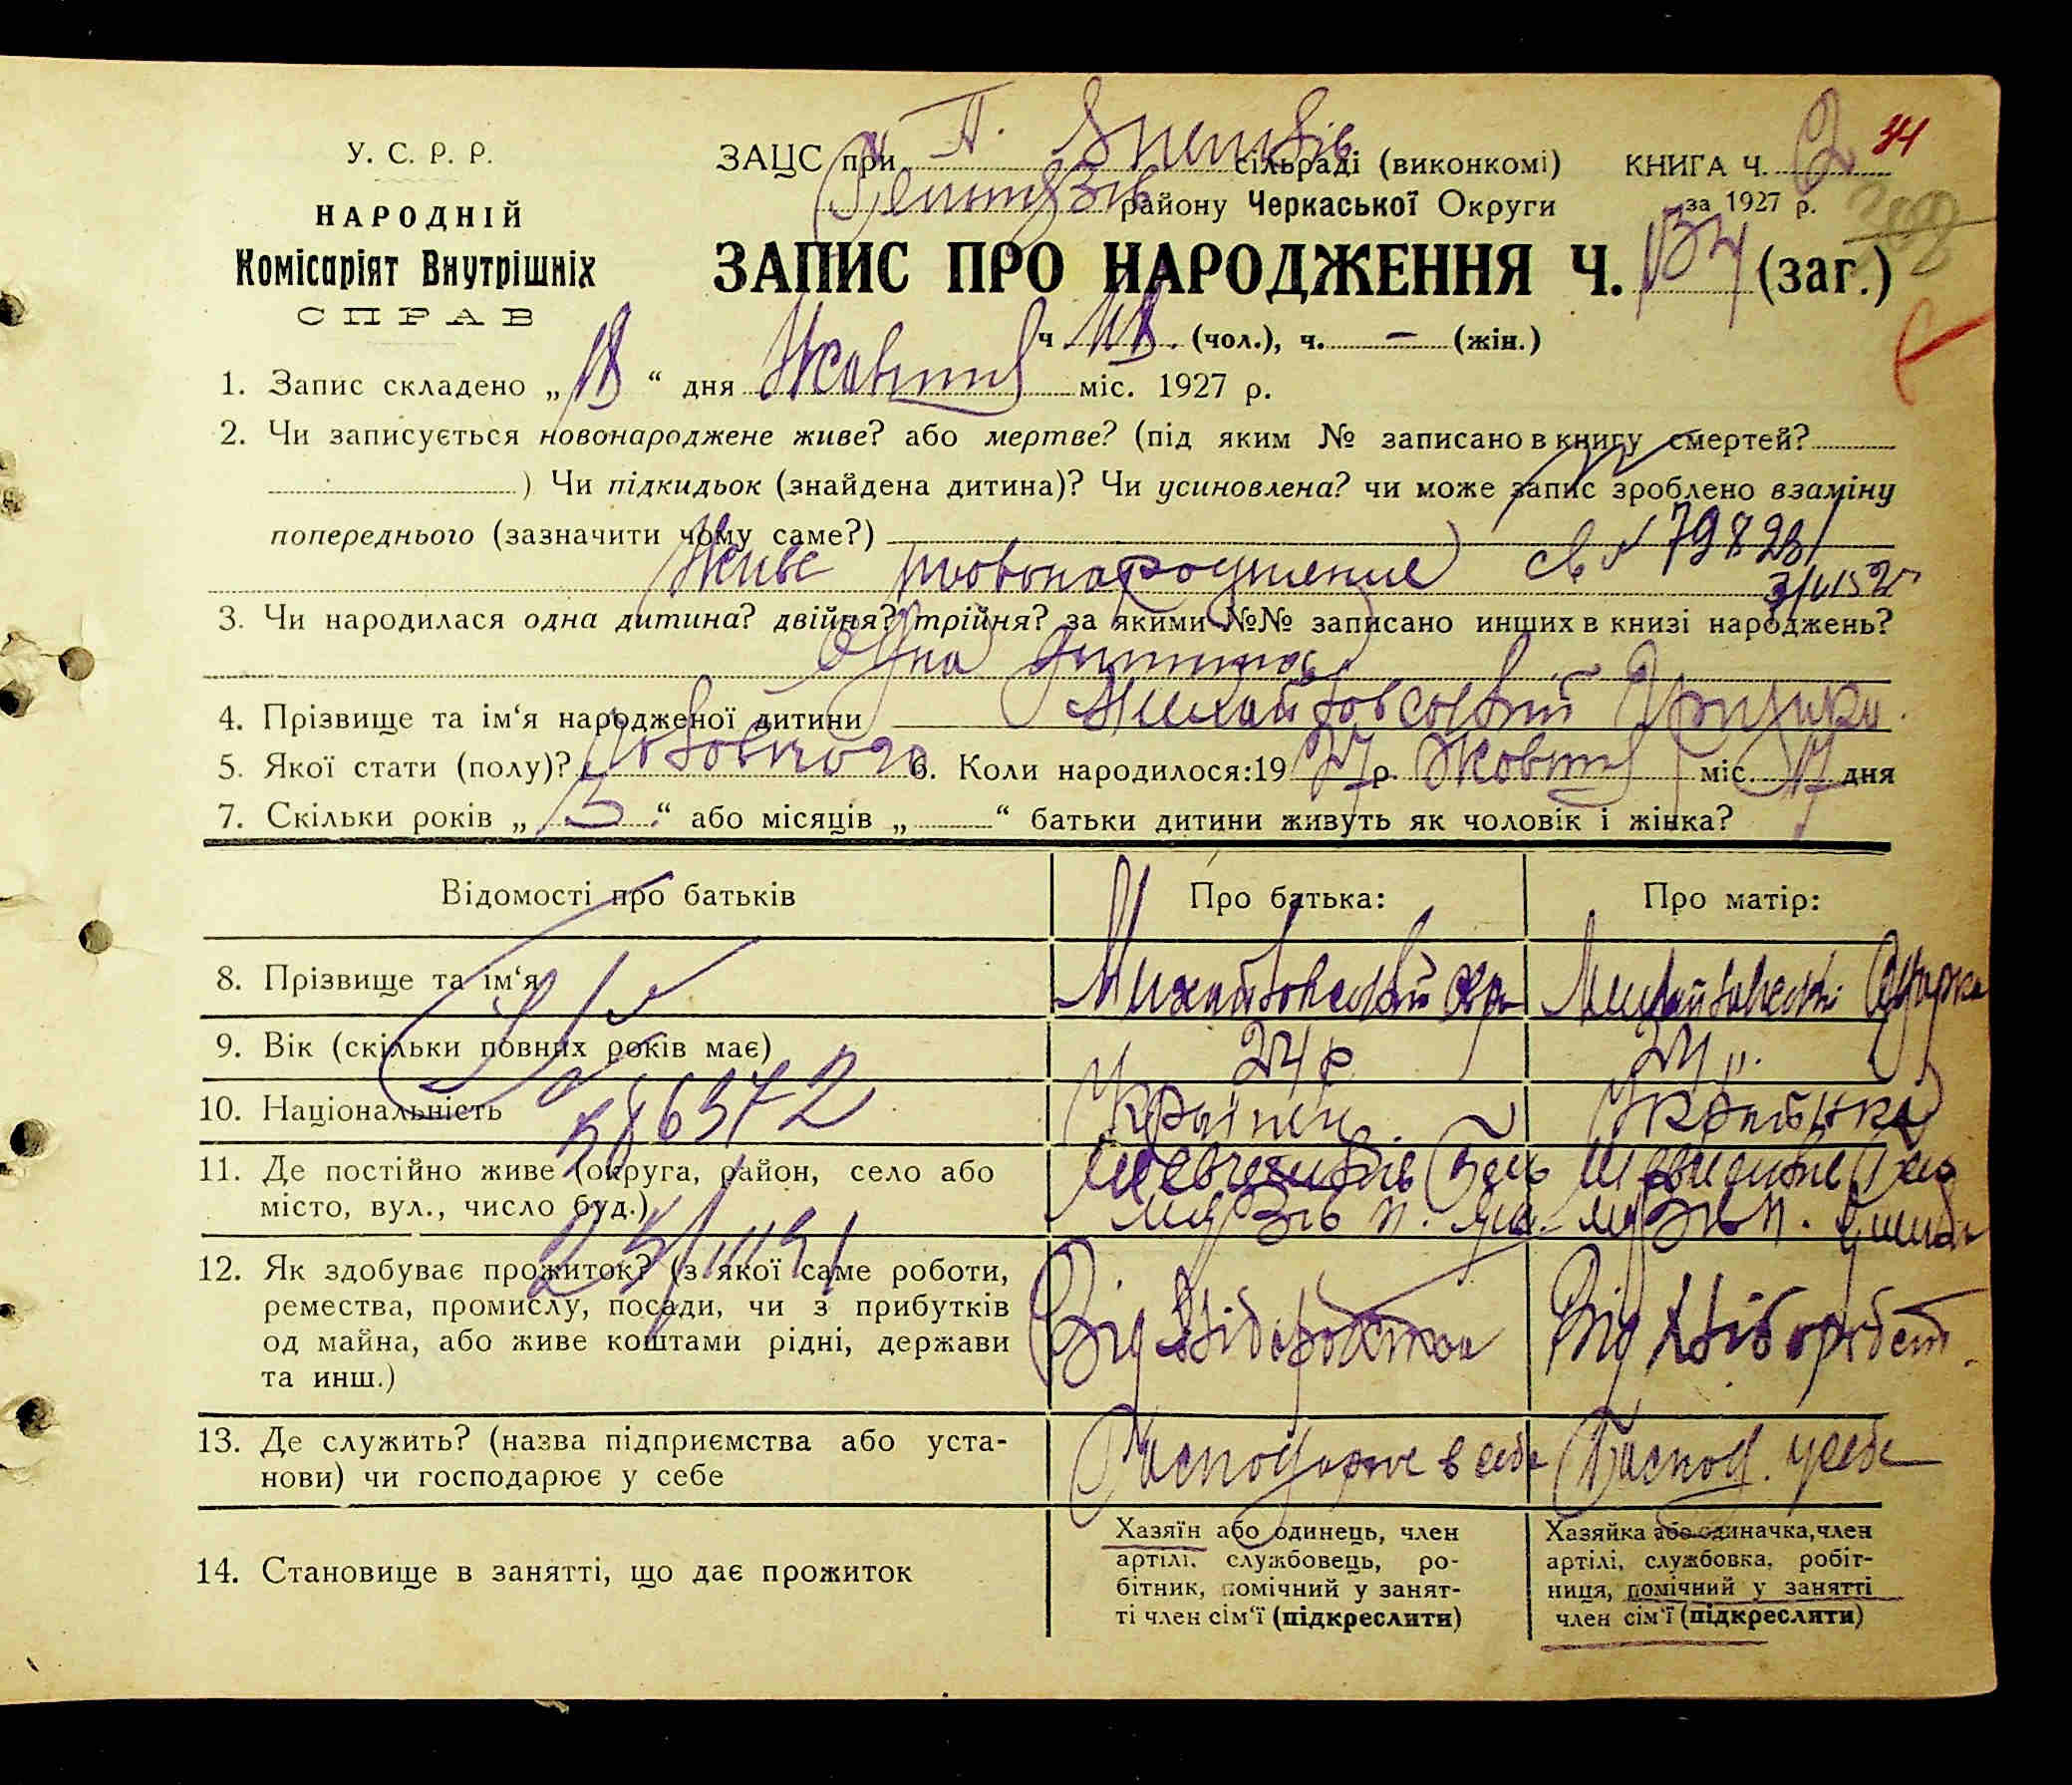 У. С. Р. Р.
НАРОДНІЙ
Комісаріят Внутрішніх
СПРАВ
ЗАЦС при П. сільраді (виконкомі) КНИГА Ч. 2 34
району Черкаської Округи за 1927 р.
ЗАПИС ПРО НАРОДЖЕННЯ Ч. 134 (заг.)
ч (чол.), ч. — (жін.)
1. Запис складено „18“ дня Жовтня міс. 1927 р.
2. Чи записується новонароджене живе? або мертве? (під яким № записано в книгу смертей?
) Чи підкидьок (знайдена дитина)? Чи усиновлена? чи може запис зроблено взаміну
попереднього (зазначити чому саме?)
Живе новонароджение св № 79828
3. Чи народилася одна дитина? двійня? трійня? за якими №№ записано инших в книзі народжень?
Одна дитина
4. Прізвище та ім‘я народженої дитини Михайловський Грицько
5. Якої стати (полу)? Чоловічого 6. Коли народилося: 1927 р. Жовтня міс. 17 дня
7. Скільки років „3“ або місяців „ “ батьки дитини живуть як чоловік і жінка?
Відомості про батьків Про батька: Про матір:
8. Прізвище та ім‘я Михайловський Михайловська Одарка
9. Вік (скільки повних років має) 24 р 24 „.
10. Національність Українец. Українка
586372
11. Де постійно живе (округа, район, село або
місто, вул., число буд.)
12. Як здобуває прожиток? (з якої саме роботи,
ремества, промислу, посади, чи з прибутків
од майна, або живе коштами рідні, держави
та инш.)
Від Хліборобства Від Хлібороbст.
13. Де служить? (назва підприємства або уста-
нови) чи господарює у себе
Господарює в себе Господ. у себе
14. Становище в занятті, що дає прожиток
Хазяїн або одинець, член
артілі, службовець, ро-
бітник, помічний у занят-
ті член сім‘ї (підкреслити)
Хазяйка або одиначка, член
артілі, службовка, робіт-
ниця, помічний у занятті
член сім‘ї (підкреслити)